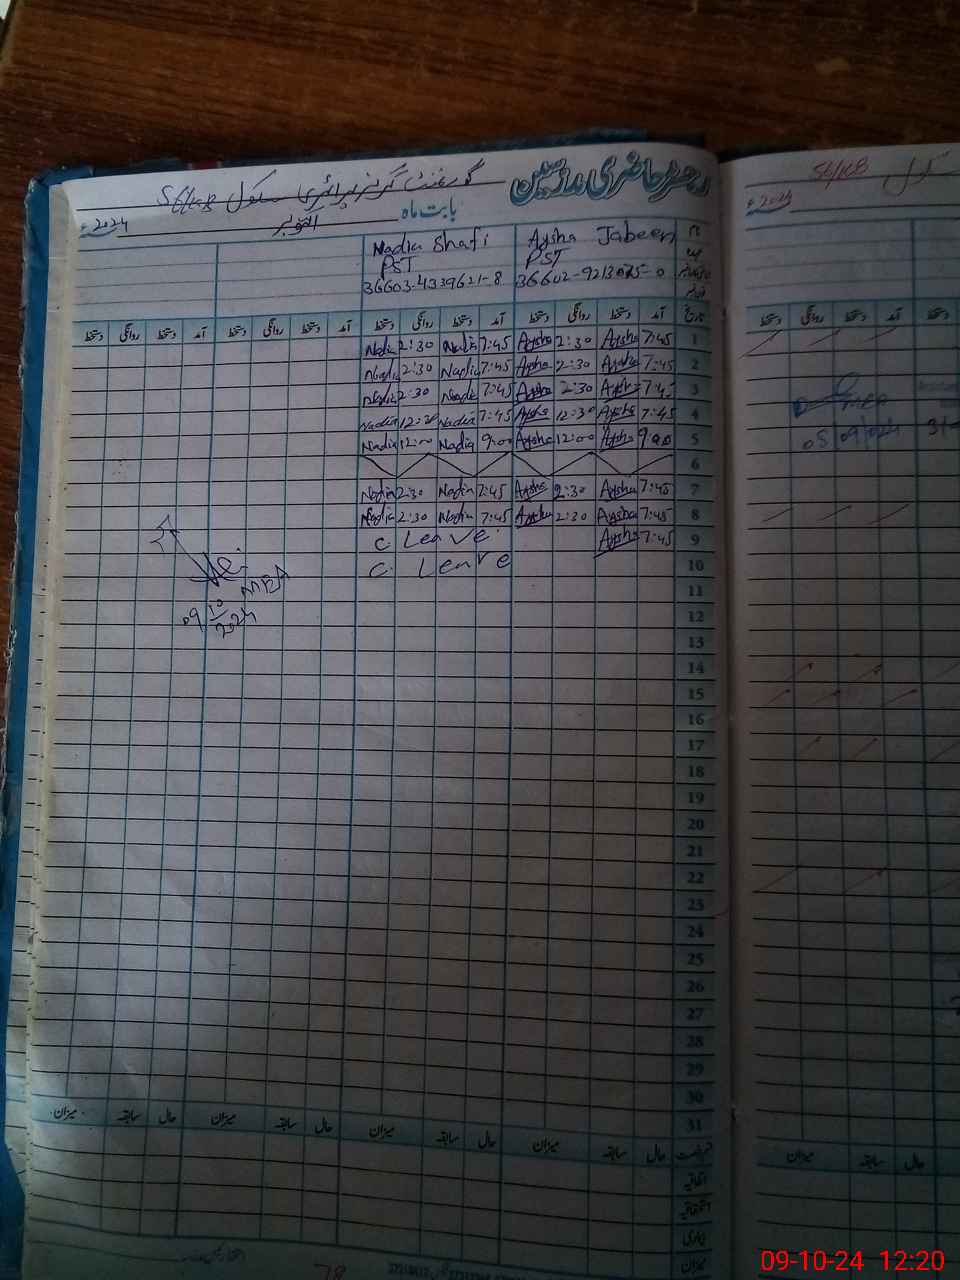 رجسٹر حاضری مدرسین گورنمنٹ گرلز پرائمری سکول 56/KB
بابت ماہ اکتوبر 2024ء
Aysha Jabeen Nadia Shafi
PST PST
36603-4339621-8
تاریخ آمد دستخط روانگی دستخط آمد دستخط روانگی دستخط آمد دستخط روانگی دستخط آمد دستخط روانگی دستخط
1 7:45 Aysha 2:30 Aysha 7:45 Nadia 2:30 Nadia
2 7:45 Aysha 2:30 Aysha 7:45 Nadia 2:30 Nadia
3 7:45 Aysha 2:30 Aysha 7:45 Nadia 2:30 Nadia
4 7:45 Aysha 12:30 Aysha 7:45 Nadia 12:30 Nadia
5 9:00 Aysha 12:00 Aysha 9:00 Nadia 12:00 Nadia
6
7 7:45 Aysha 2:30 Aysha 7:45 Nadia 2:30 Nadia
8 7:45 Aysha 2:30 Aysha 7:45 Nadia 2:30 Nadia
9 7:45 Aysha C. Leave
10 C. Leave
11
12
13
14
15
16
17
18
19
20
21
22
23
24
25
26
27
28
29
30
31
MEA
09/10/2024
حال سابقہ میزان حال سابقہ میزان حال سابقہ میزان حال سابقہ میزان
اتفاقیہ
بیماری
میزان
78
سکول 56/KB
2024ء
آمد دستخط روانگی دستخط
MEA
حال سابقہ میزان
09-10-24 12:20